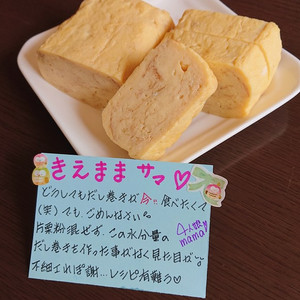 きえまま サマ♡
どうしてもだし巻きが今、食べたくて
(笑)でも、ごめんなさい。
片栗粉混ぜず、この水分量の
だし巻きを作った事がなく見た目が…
不細工れぽ謝…レシピ有難う♡
4人娘
mama